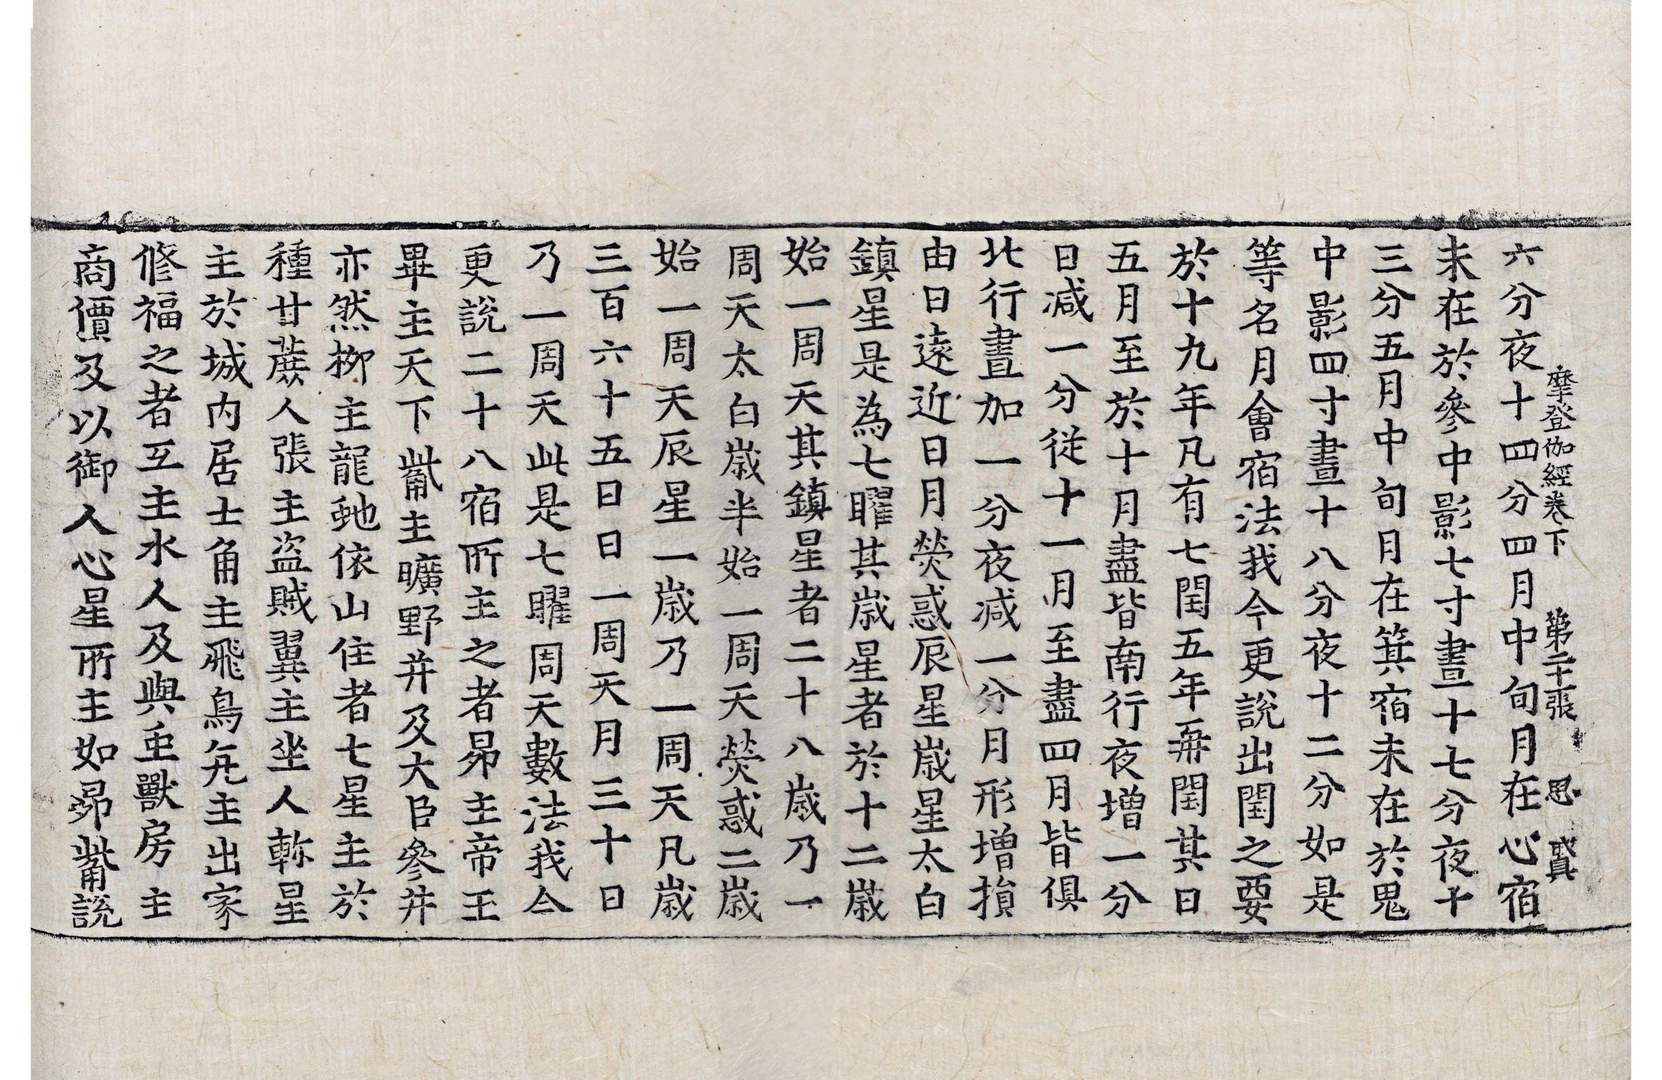 摩登伽經卷下 第二十張 思 賢
六分夜十四分四月中旬月在心宿
未在於參中影七寸晝十七分夜十
三分五月中旬月在箕宿未在於鬼
中影四寸晝十八分夜十二分如是
等名月會宿法我今更說出閏之要
於十九年凡有七閏五年再閏其日
五月至於十月盡皆南行夜增一分
日減一分從十一月至盡四月皆俱
北行晝加一分夜減一分月形增損
由日遠近日月熒惑辰星歲星太白
鎮星是為七曜其歲星者於十二歲
始一周天其鎮星者二十八歲乃一
周天太白歲半始一周天熒惑二歲
始一周天辰星一歲乃一周天凡歲
三百六十五日日一周天月三十日
乃一周天此是七曜周天數法我今
更說二十八宿所主之者昴主帝王
畢主天下觜主曠野并及大臣參井
亦然柳主龍虵依山住者七星主於
種甘蔗人張主盜賊翼主坐人軫星
主於城內居士角主飛鳥亢主出家
修福之者互主水人及與虫獸房主
商價及以御人心星所主如昴觜說